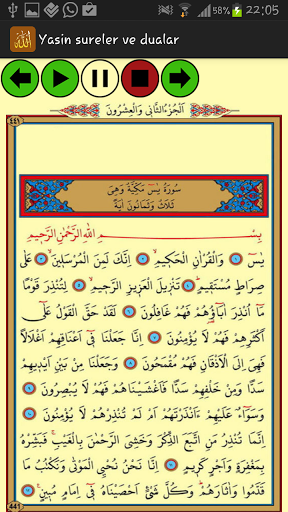 58% 22:05
Yasin sureler ve dualar
اَلْجُزْءُ الثَّانِي وَالْعِشْرُونَ
٤٤١
سُورَةُ يٰسٓ مَكِّيَّةٌ وَهِيَ
ثَلَاثٌ وَثَمَانُونَ اٰيَةً
بِسْــــــمِ اللّٰهِ الرَّحْمٰنِ الرَّحِيمِ
يٰسٓ ﴿١﴾ وَالْقُرْاٰنِ الْحَكِيمِ ﴿٢﴾ اِنَّكَ لَمِنَ الْمُرْسَلِينَ ﴿٣﴾ عَلٰى
صِرَاطٍ مُسْتَقِيمٍ ﴿٤﴾ تَنْزِيلَ الْعَزِيزِ الرَّحِيمِ ﴿٥﴾ لِتُنْذِرَ قَوْمًا
مَٓا اُنْذِرَ اٰبَٓاؤُ۬هُمْ فَهُمْ غَافِلُونَ ﴿٦﴾ لَقَدْ حَقَّ الْقَوْلُ عَلٰٓى
اَكْثَرِهِمْ فَهُمْ لَا يُؤْمِنُونَ ﴿٧﴾ اِنَّا جَعَلْنَا فِٓي اَعْنَاقِهِمْ اَغْلَالًا
فَهِيَ اِلَى الْاَذْقَانِ فَهُمْ مُقْمَحُونَ ﴿٨﴾ وَجَعَلْنَا مِنْ بَيْنِ اَيْدِيهِمْ
سَدًّا وَمِنْ خَلْفِهِمْ سَدًّا فَاَغْشَيْنَاهُمْ فَهُمْ لَا يُبْصِرُونَ ﴿٩﴾
وَسَوَٓاءٌ عَلَيْهِمْ ءَاَنْذَرْتَهُمْ اَمْ لَمْ تُنْذِرْهُمْ لَا يُؤْمِنُونَ ﴿١٠﴾
اِنَّمَا تُنْذِرُ مَنِ اتَّبَعَ الذِّكْرَ وَخَشِيَ الرَّحْمٰنَ بِالْغَيْبِ فَبَشِّرْهُ
بِمَغْفِرَةٍ وَاَجْرٍ كَرِيمٍ ﴿١١﴾ اِنَّا نَحْنُ نُحْيِ الْمَوْتٰى وَنَكْتُبُ مَا
قَدَّمُوا وَاٰثَارَهُمْ وَكُلَّ شَيْءٍ اَحْصَيْنَاهُ فِٓي اِمَامٍ مُبِينٍ ﴿١٢﴾
441